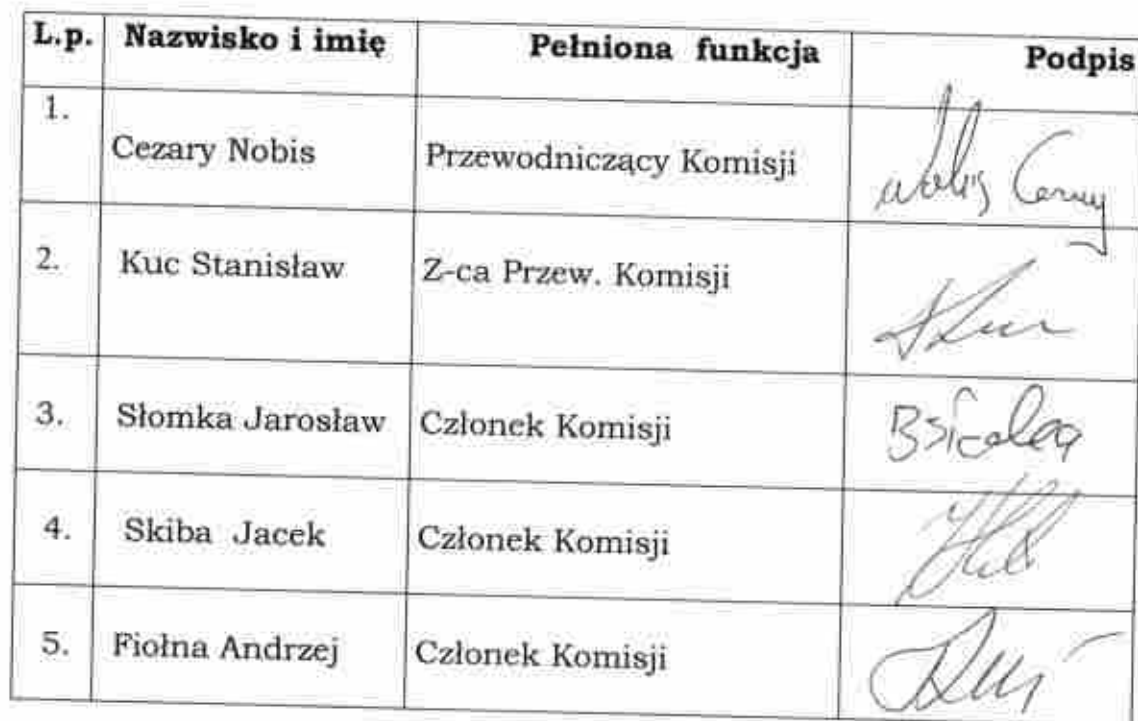 L.p. Nazwisko i imię Pełniona funkcja Podpis
1. Cezary Nobis Przewodniczący Komisji Nobis Cezary
2. Kuc Stanisław Z-ca Przew. Komisji
3. Słomka Jarosław Członek Komisji
4. Skiba Jacek Członek Komisji
5. Fiołna Andrzej Członek Komisji